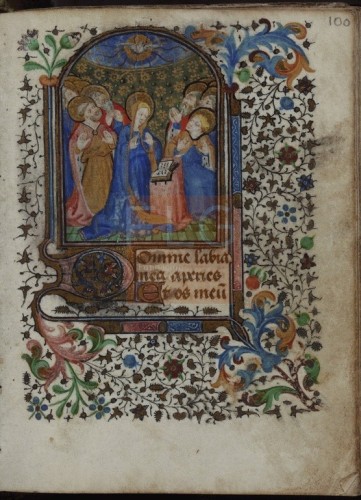 100
Domine labia
mea aperies
Et os meū